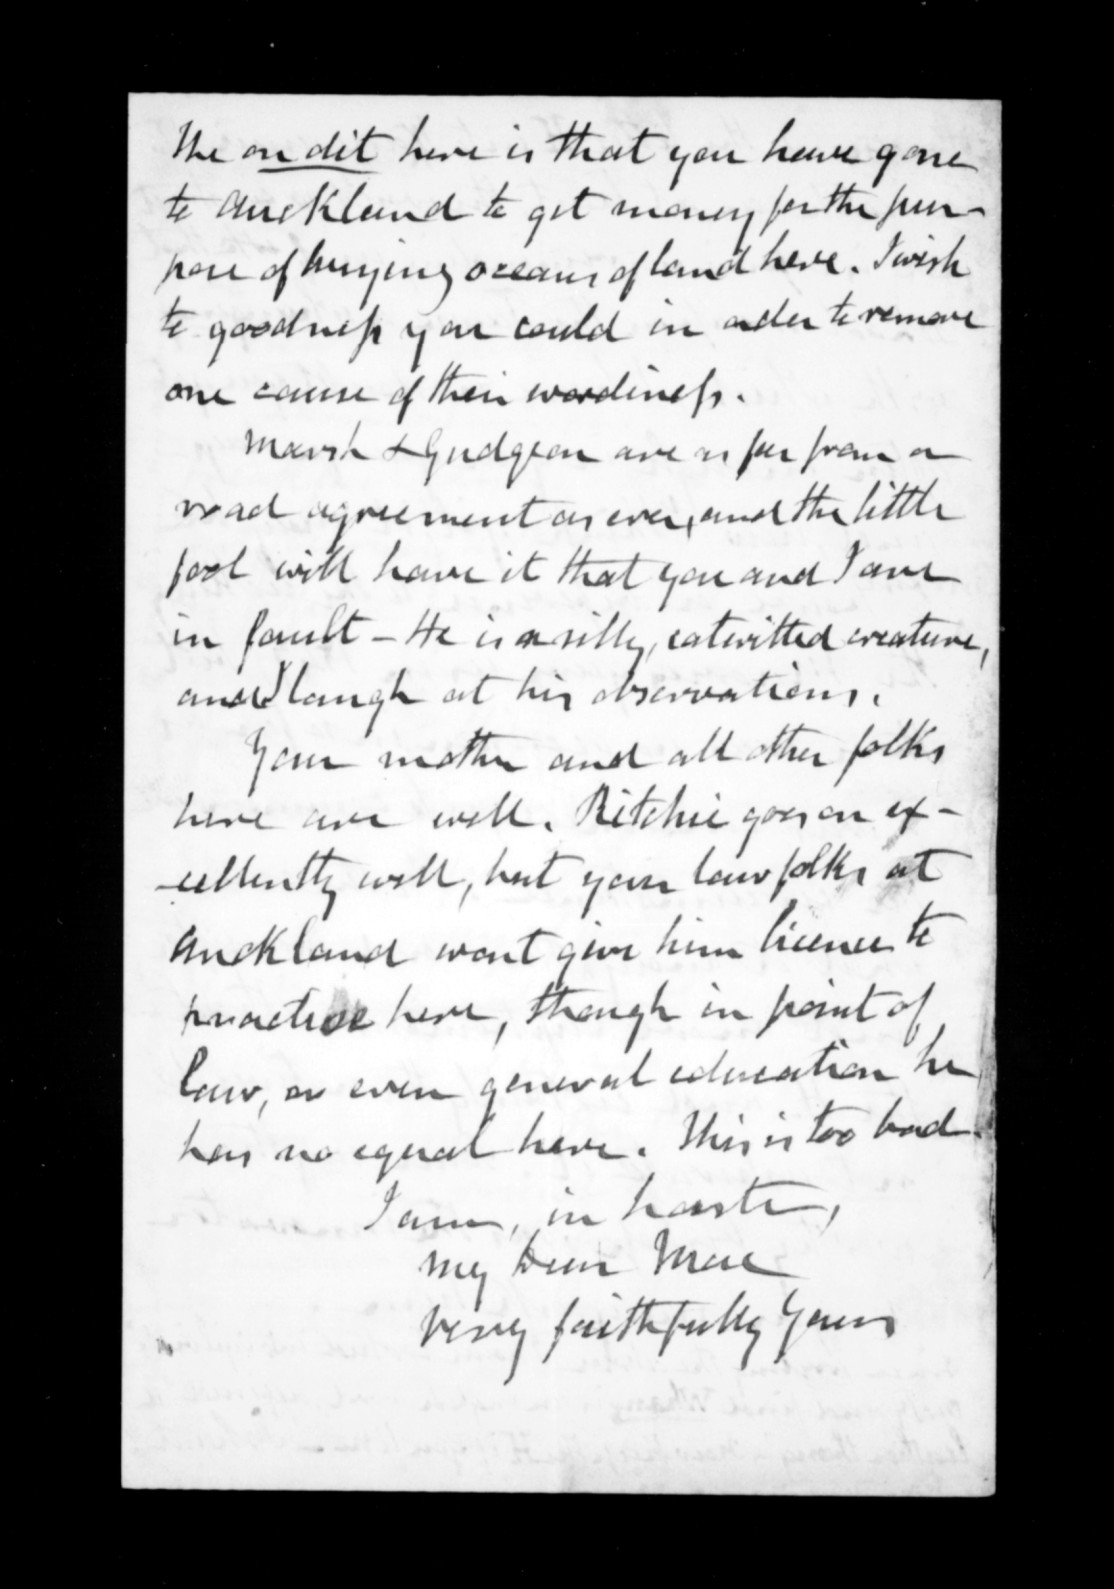 The on dit here is that you have gone
to Auckland to get money for the pur-
pose of buying oceans of land here. I wish
to goodness you could in order to remove
one cause of their wordiness.
Marsh & Gudgeon are as far from a
road agreement as ever, and the little
fool will have it that you and I are
in fault - He is a silly, catwitted creature,
and I laugh at his observations.
Your mother and all other folks
here are well. Ritchie goes on ex-
-cellently well, but your law folks at
Auckland wont give him licence to
practise here, though in point of
law, or even general education he
has no equal here. This is too bad.
I am, in haste,
My Dear Mac
Very faithfully Yours